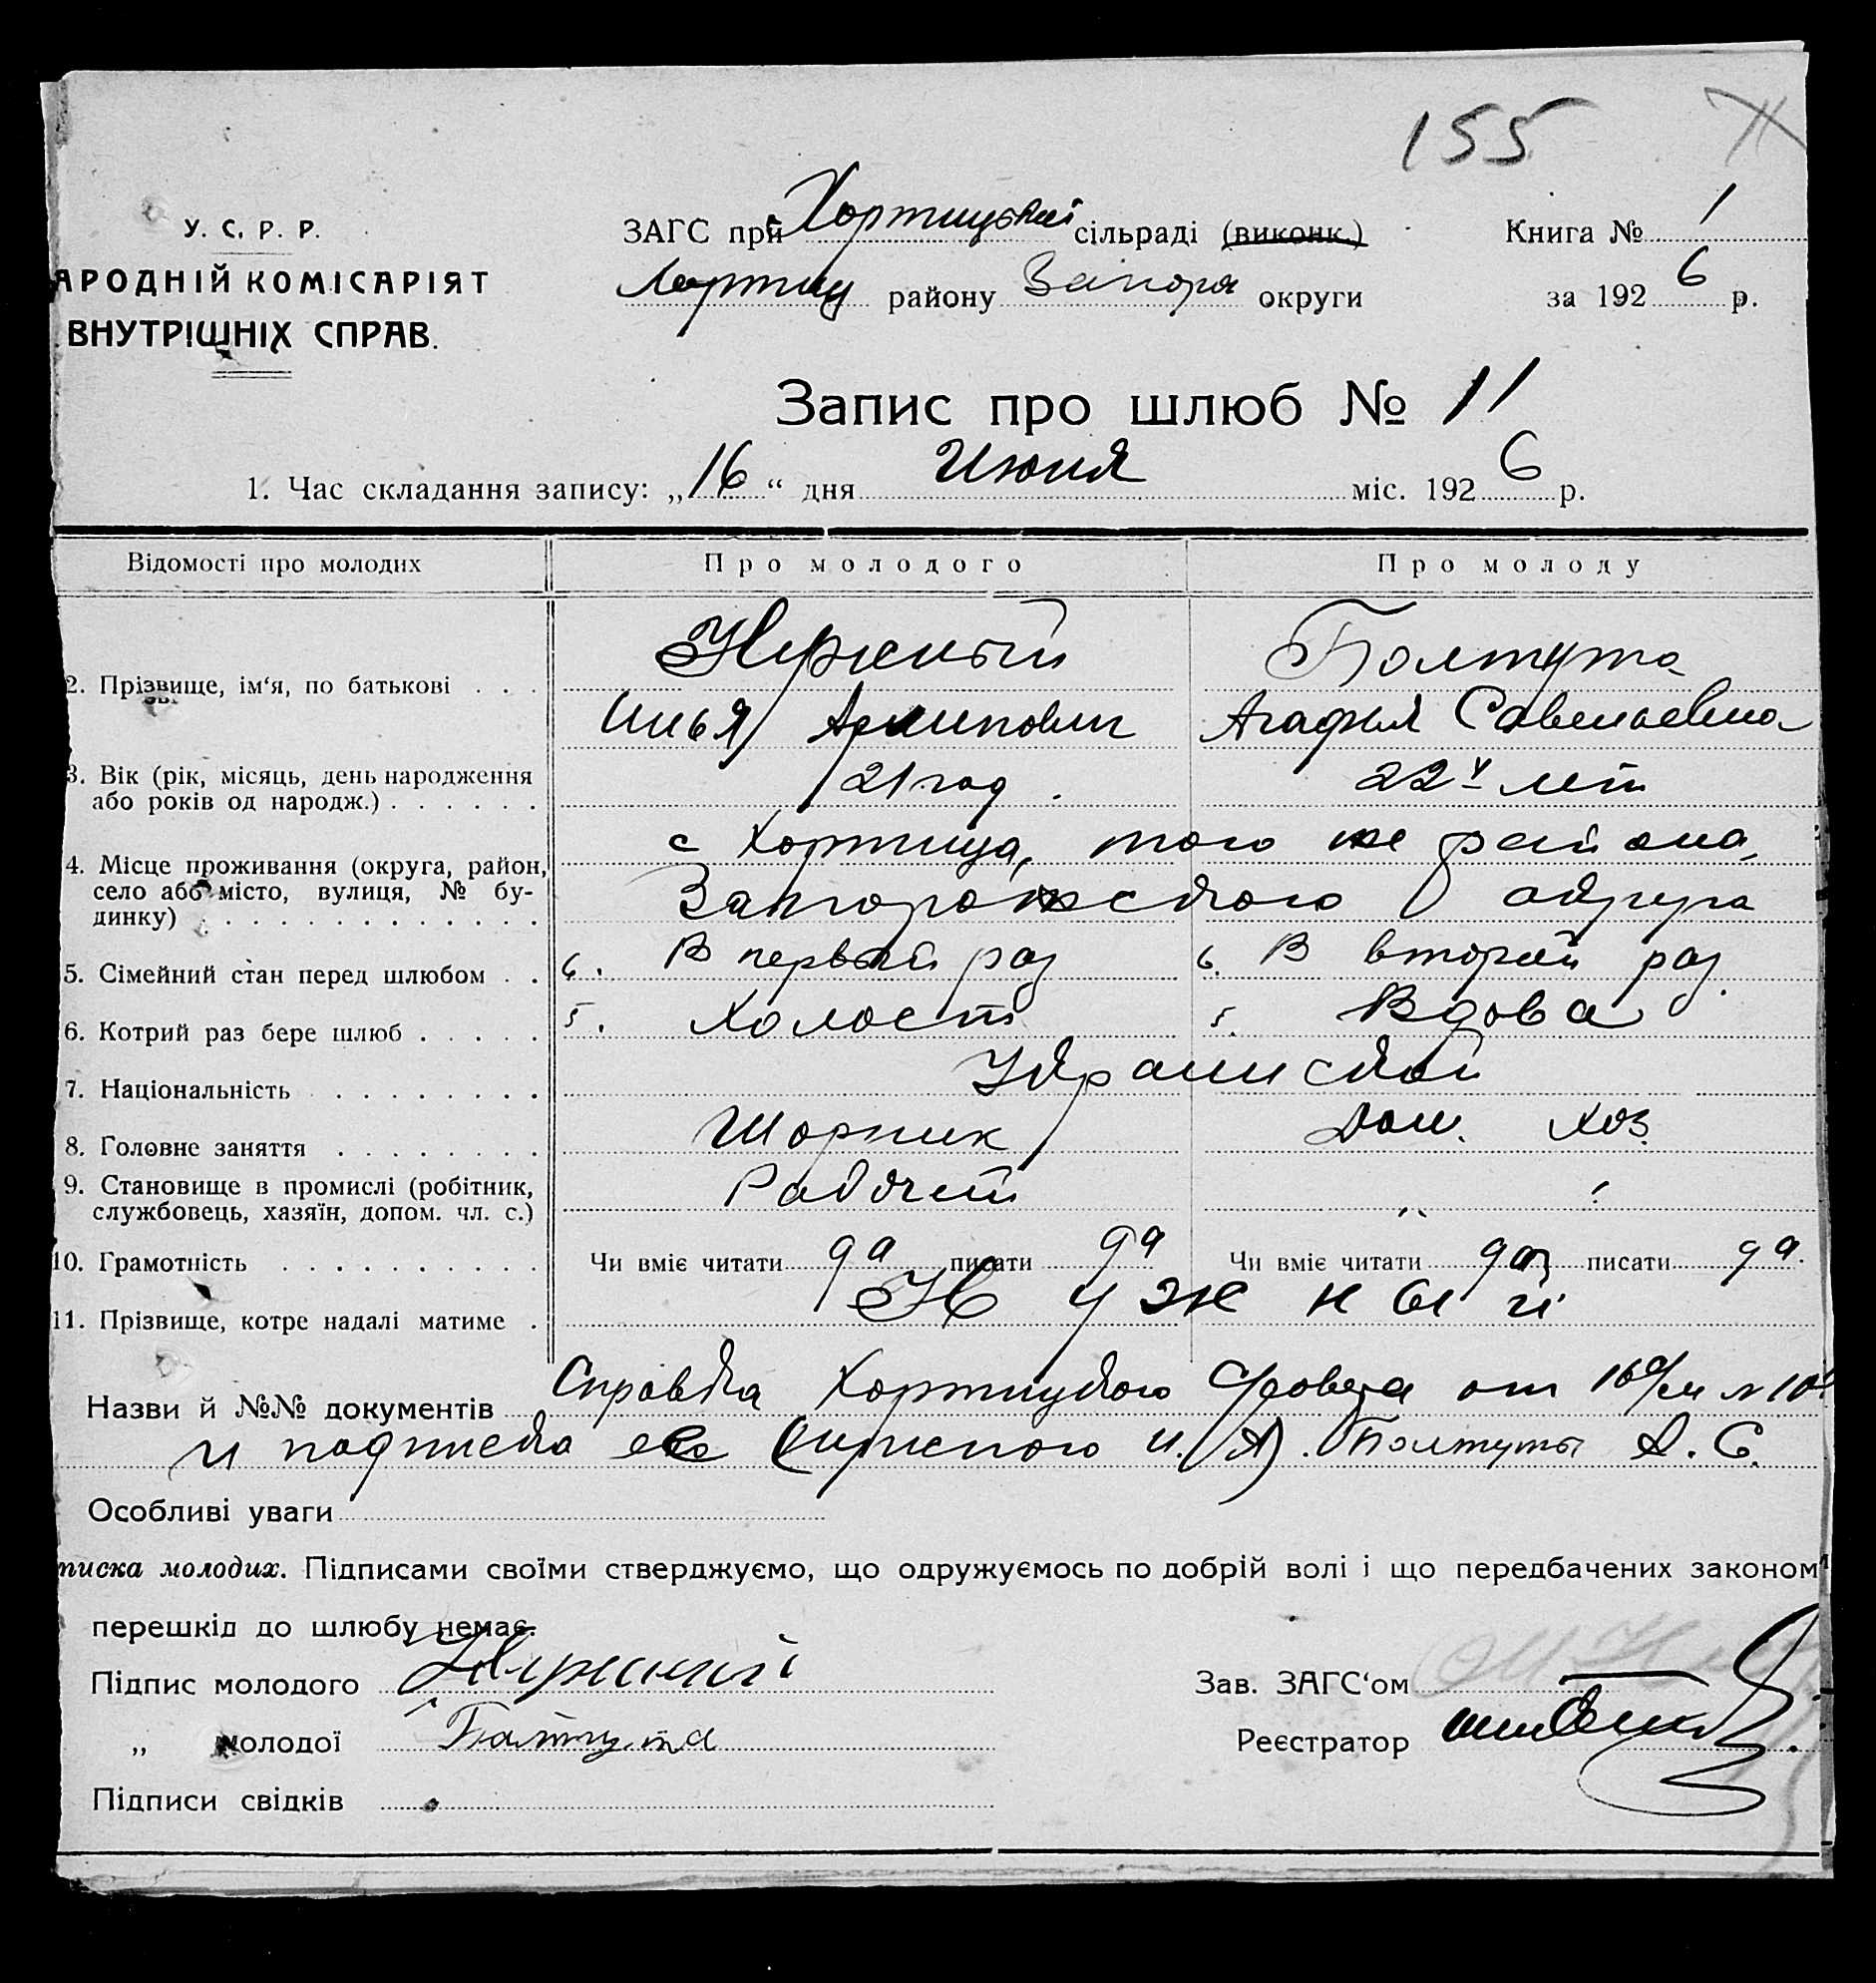 155
У. С. Р. Р.
АРОДНІЙ КОМІСАРІЯТ
ВНУТРІШНІХ СПРАВ.
ЗАГС при Хортицькій сільраді (виконк.)
Хортиц району Запорж округи
Книга № 1
за 1926 р.
Запис про шлюб № 11
1. Час складання запису: „16“ дня Июня міс. 1926 р.
Відомості про молодих Про молодого Про молоду
2. Прізвище, ім‘я, по батькові . . . Нужный Полтута
Илья Архипович Агафья Савельевна
3. Вік (рік, місяць, день народження
або років од народж.) . . . . . . 21 год. 22 лет
4. Місце проживання (округа, район, с Хортица, того же района,
село або місто, вулиця, № бу-
динку) . . . . . . . . . . . . Запорожского округа
5. Сімейний стан перед шлюбом . . 6. В первый раз 6. В второй раз
6. Котрий раз бере шлюб . . . . . 5. Холост 5. Вдова
7. Національність . . . . . . . . Украинской
8. Головне заняття . . . . . . . . Шорник Дом. хоз.
9. Становище в промислі (робітник,
службовець, хазяїн, допом. чл. с.) Рабочий
10. Грамотність . . . . . . . . . . Чи вміє читати да писати да Чи вміє читати да писати да.
11. Прізвище, котре надалі матиме . Нужный
Назви й №№ документів Справка Хортицкого от 16/
и подписка (Нужного И. А). Полтуты А. С.
Особливі уваги
писка молодих. Підписами своїми стверджуємо, що одружуємось по добрій волі і що передбачених законом
перешкід до шлюбу немає.
Підпис молодого Нужний
„ молодої Палтута
Підписи свідків
Зав. ЗАГС‘ом
Реєстратор